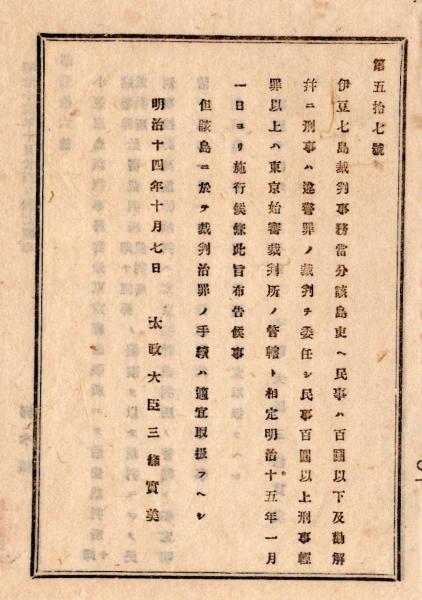 第五拾七號
伊豆七島裁判事務當分該島吏ヘ民事ハ百圓以下及勸解
幷ニ刑事ハ違警罪ノ裁判ヲ委任シ民事百圓以上刑事輕
罪以上ハ東京始審裁判所ノ管轄ト相定明治十五年一月
一日ヨリ施行候條此旨布告候事
但該島ニ於テ裁判治罪ノ手續ハ適宜取扱フヘシ
明治十四年十月七日 太政大臣三條實美